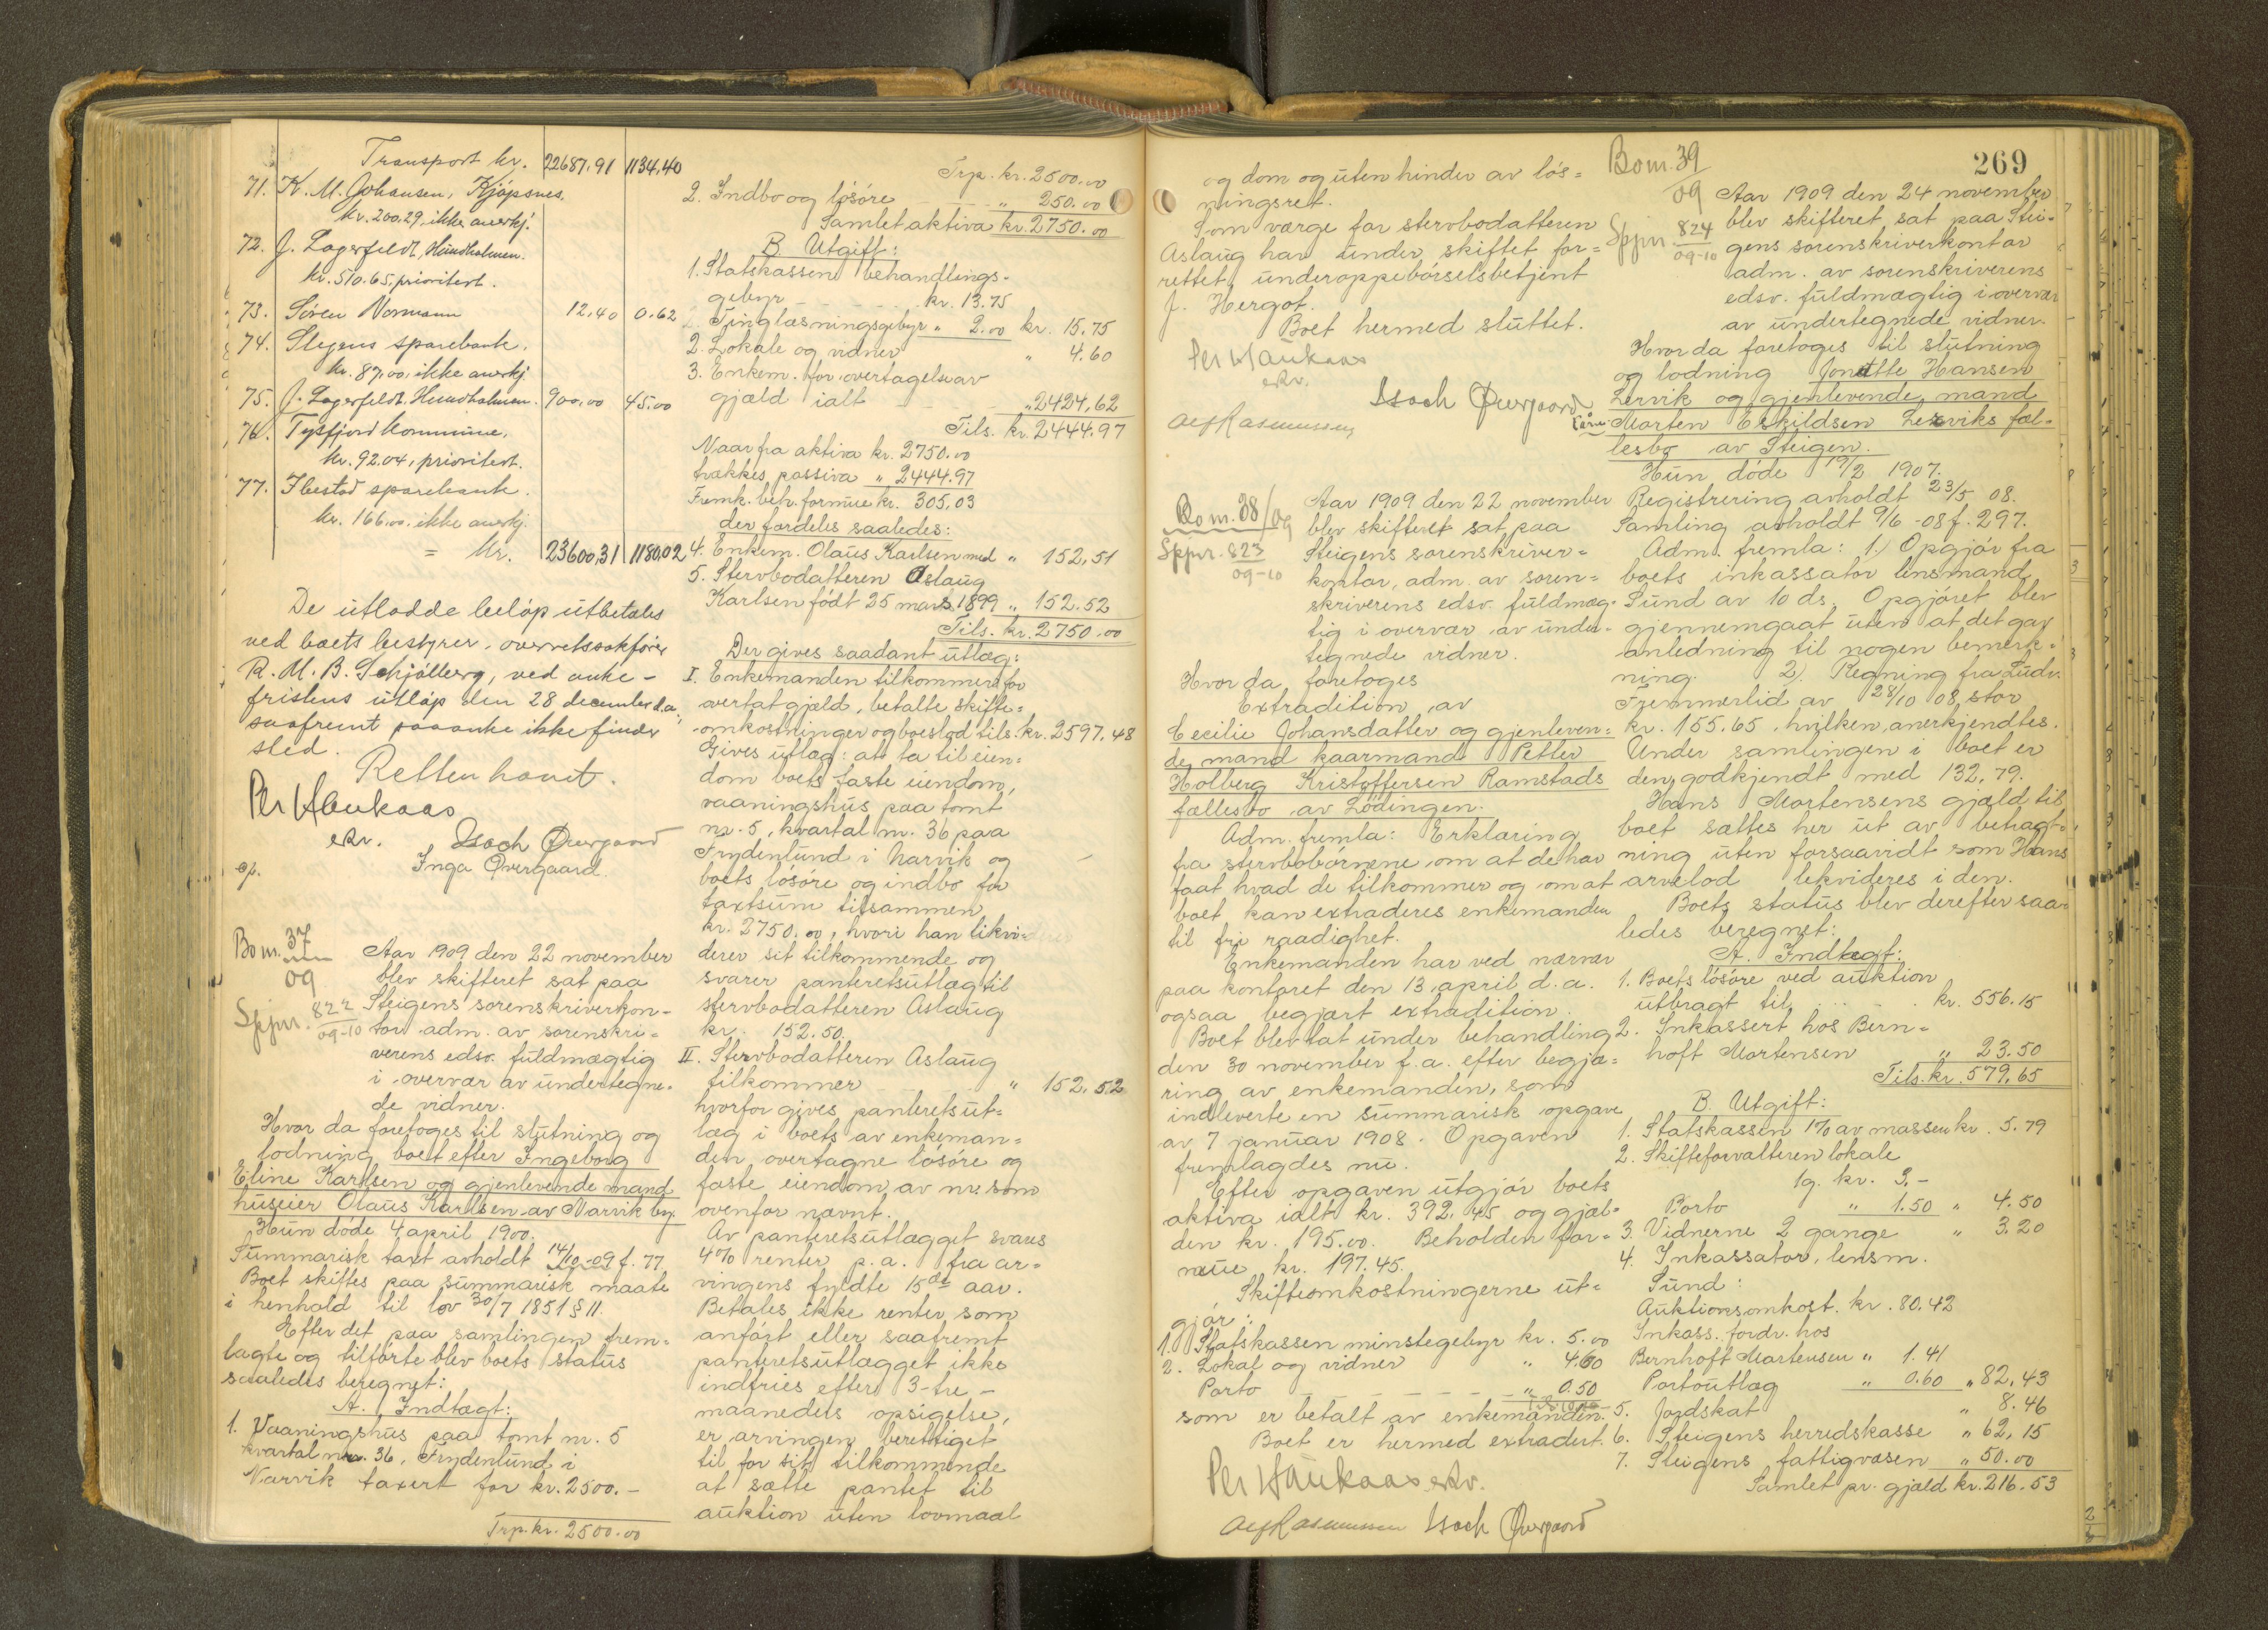 Transport kr. 22687,91 1134,40
71. K. M. Johansen, Kjöpsnes,
kr. 200.29, ikke anerkj.
72. J. Lagerfeldt, Hundholmen.
kr. 510.65, prioritert.
73. Sören Normann 12,40 0.62
74. Stegens sparebank.
kr. 87,00, ikke anerkj.
75. J. Lagerfeldt. Hundholmen. 900,00 45,00
76. Tysfjord kommune.
kr. 92.04, prioritert.
77. Ibestad sparebank.
kr. 166.00. ikke anerkj.
= kr. 23600,31 1180,02
De utlodde belöp utbetales
ved boets bestyrer, overretssakförer
R. M. B. Schjölberg, ved anke-
fristens utlöp den 28 december d.a.,
saafremt paaanke ikke finder
sted.
Retten hævet.
Per Haukaas
eKv. Isach Overgaard
ep. Inga Overgaard.
Bom. 37
09
Sppr. 822
09-10
Aar 1909 den 22 november
blev skifteret sat paa
Steigens sorenskriverkon-
tor adm. av sorenskri=
verens edsv. fuldmægtig
i overvær av undertegne-
de vidner.
Hvor da foretoges til slutning og
lodning boet efter Ingeborg
Eline Karlsen og gjenlevende mand
huseier Olaus Karlsen av Narvik by.
Hun döde 4 april 1900.
Summarisk taxt avholdt 14/10-09 f. 77.
Boet skiftes paa summarisk maate
i henhold til lov 30/7 1851 § 11.
Efter det paa samlingen frem=
lagte og tilförte blev boets status
saaledes beregnet:
A. Indtægt:
1. Vaaningshus paa tomt nr. 5
kvartal nr. 36, Frydenlund i
Narvik taxert for kr. 2500.-
Trp. kr. 2500.00
Trp. kr. 2500.00
2. Indbo og lösöre " 250.00
Samlet aktiva kr. 2750.00
B. Utgift:
1. Statskassen behandlings-
gebyr kr. 13.75
Tinglæsningsgebyr " 2.00 kr. 15.75
2. Lokale og vidner " 4.60
3. Enkem. for overtagelse av
gjæld ialt " 2424,62
Tils. kr. 2444.97
Naar fra aktiva kr. 2750.00
trækkes passiva " 2444.97
Fremk. beh. formue kr. 305,03
der fordeles saaledes:
4. Enkem. Olaus Karlsen med " 152,51
5. Stervbodatteren Aslaug
Karlsen födt 25 mars 1899 " 152.52
Tils. kr. 2750.00
Der gives saadant utlæg:
I. Enkemanden tilkommer for
overtat gjæld, betalte skifte=
omkostninger og boeslod tils. kr. 2597.48
Gives utlæg: at ta til eien=
dom boets faste eiendom,
vaaningshus paa tomt
nr. 5, kvartal nr. 36 paa
Frydenlund i Narvik og
boets lösöre og indbo for
taxtsum tilsammen
kr. 2750.00, hvori han likvi=
derer sit tilkommende og
svarer panteretsutlæg til
stervbodatteren Aslaug
kr. 152.50.
II. Stervbodatteren Aslaug
tilkommer " 152.52
hvorfor gives panteretsut=
læg i boets av enkeman=
den overtagne lösöre og
faste eiendom av nr. som
ovenfor nævnt.
Av panteretsutlægget svares
4% renter p.a. fra ar=
vingens fyldte 15de aar.
Betales ikke renter som
anfört eller saafremt
panteretsutlægget ikke
indfries efter 3-tre-
maaneders opsigelse,
er arvingen berettiget
til for sit tilkommende
at sætte pantet til
auktion uten lovmaal
og dom og uten hinder av lös=
ningsret.
Som værge for stervbodatteren
Aslaug har under skiftet for=
rettet underoppebörselsbetjent
J. Hergot.
Boet hermed sluttet.
Per Haukaas
eKv.
Isach Overgaard
Alf Rasmussen
Bom. 38/09
Sppr. 823
09-10
Aar 1909 den 22 november
blev skifteret sat paa
Steigens sorenskriver=
kontor, adm. av soren=
skriverens edsv. fuldmæg-
tig i overvær av under-
tegnede vidner.
Hvor da foretoges
Extradition av
Cecilie Johansdatter og gjenleven=
de mand kaarmand Petter
Holberg Kristoffersen Ramstads
fællesbo av Lödingen.
Adm. fremla: Erklæring
fra stervbobörnene om at de har
faat hvad de tilkommer og om at
boet kan extraderes enkemanden
til fri raadighet.
Enkemanden har ved nærvær
paa kontoret den 13 april d.a.
ogsaa begjært extradition.
Boet blev tat under behandling
den 30 november f.a. efter begjæ=
ring av enkemanden, som
indleverte en summarisk opgave
av 7 januar 1908. Opgaven
fremlagdes nu.
Efter opgaven utgjör boets
aktiva ialt kr. 392.45 og gjæl=
den kr. 195.00. Beholden for=
mue kr. 197.45.
Skifteomkostningerne ut=
gjör:
1. Statskassen minstegebyr kr. 5.00
2. Lokal og vidner " 4.60
Porto " 0.50
som er betalt av enkemanden.
Boet er hermed extradert.
Per Haukaas eKv.
Alf Rasmussen Isach Overgaard
269
Bom. 39
09
Sppr. 824
09-10
Aar 1909 den 24 november
blev skifteret sat paa Stei-
gens sorenskriverkontor
adm. av sorenskriverens
edsv. fuldmægtig i overvær
av undertegnede vidner.
Hvor da foretoges til slutning
og lodning Jonette Hansen
Lervik og gjenlevende mand
Morten Eskildsen Lerviks fæl-
lesbo av Steigen.
Hun döde 19/2 1907.
Registrering avholdt 23/5 08.
Samling avholdt 9/6-08 f. 297.
Adm. fremla: 1.) Opgjör fra
boets inkassator lensmand
Sund av 10 ds. Opgjöret blev
gjennemgaat uten at det gav
anledning til nogen bemerk=
ning. 2) Regning fra Ludv.
Fremmerlid av 28/10 08, stor
kr. 155.65, hvilken anerkjendtes.
Under samlingen i boet er
den godkjendt med 132,79.
Hans Mortensens gjæld til
boet sættes her ut av betragt=
ning uten forsaavidt som Hans
arvelod likvideres i den.
Boets status blev derefter saa=
ledes beregnet:
A. Indtægt:
1. Boets lösöre ved auktion
utbragt til kr. 556.15
2. Inkassert hos Bern=
hoft Mortensen " 23.50
Tils. kr. 579,65
B. Utgift:
1. Statskassen 1% av massen kr. 5.79
2. Skifteforvalteren lokale
1 g. kr. 3.-
Porto " 1.50 " 4.50
3. Vidnerne 2 gange " 3.20
4. Inkassator, lensm.
Sund:
Auktionsomkost. kr. 80.42
Inkass. fordr. hos
Bernhoft Mortensen " 1.41
Portoutlæg " 0.60 " 82,43
5. Jordskat " 8.46
6. Steigens herredskasse " 62,15
7. Steigens fattigvæsen " 50.00
Samlet pr. gjæld kr. 216.53